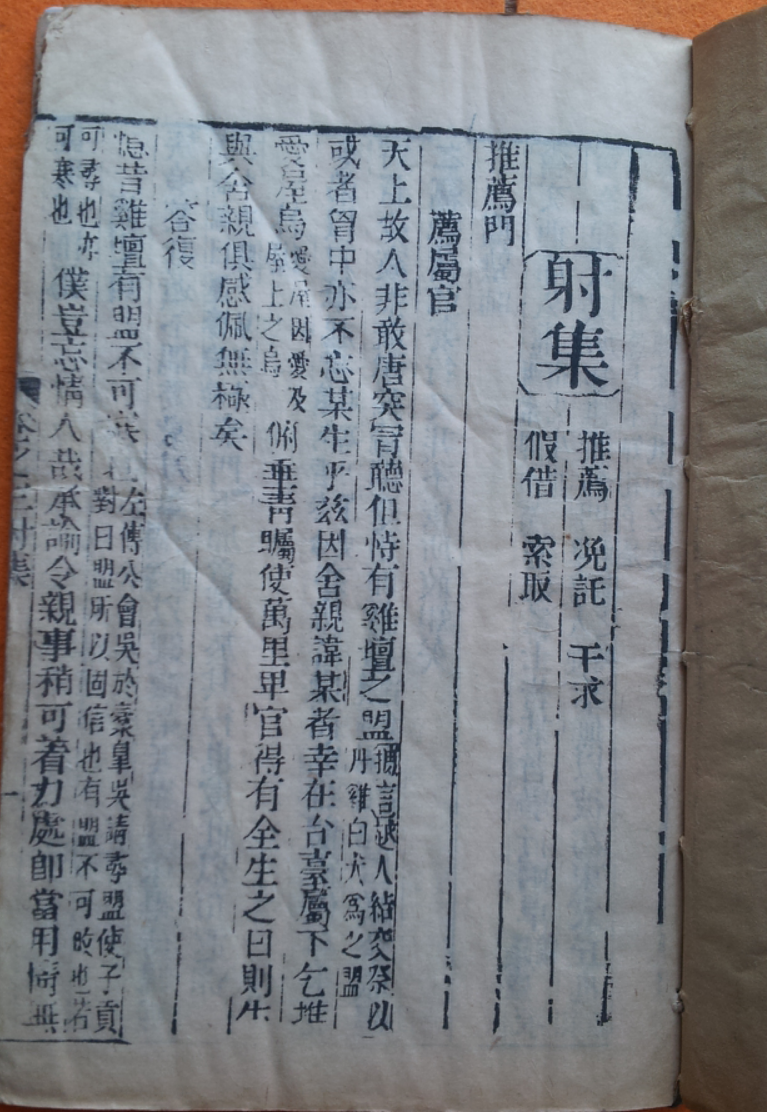 射集
推薦　浼託　干求
假借　索取
推薦門
薦屬官
天上故人非敢唐突冐聽但恃有雞壇之盟
越人結交祭以
丹雞白犬為之盟
或者胷中亦不忘某生乎兹因舍親諱某者幸在台臺屬下乞推
愛屋烏
愛屋因愛及
屋上之烏
俯垂青矚使萬里畢官得有全生之日則生
與舍親俱感佩無極矣
答復
憶昔雞壇有盟不可寒也
左傳公會吳於橐皐吳請尋盟使子貢
對曰盟所以固信也有盟不可改也若
可尋也亦
可寒也
僕豈忘情人哉承諭令親事稍可着力處卽當用情無
卷之三射集